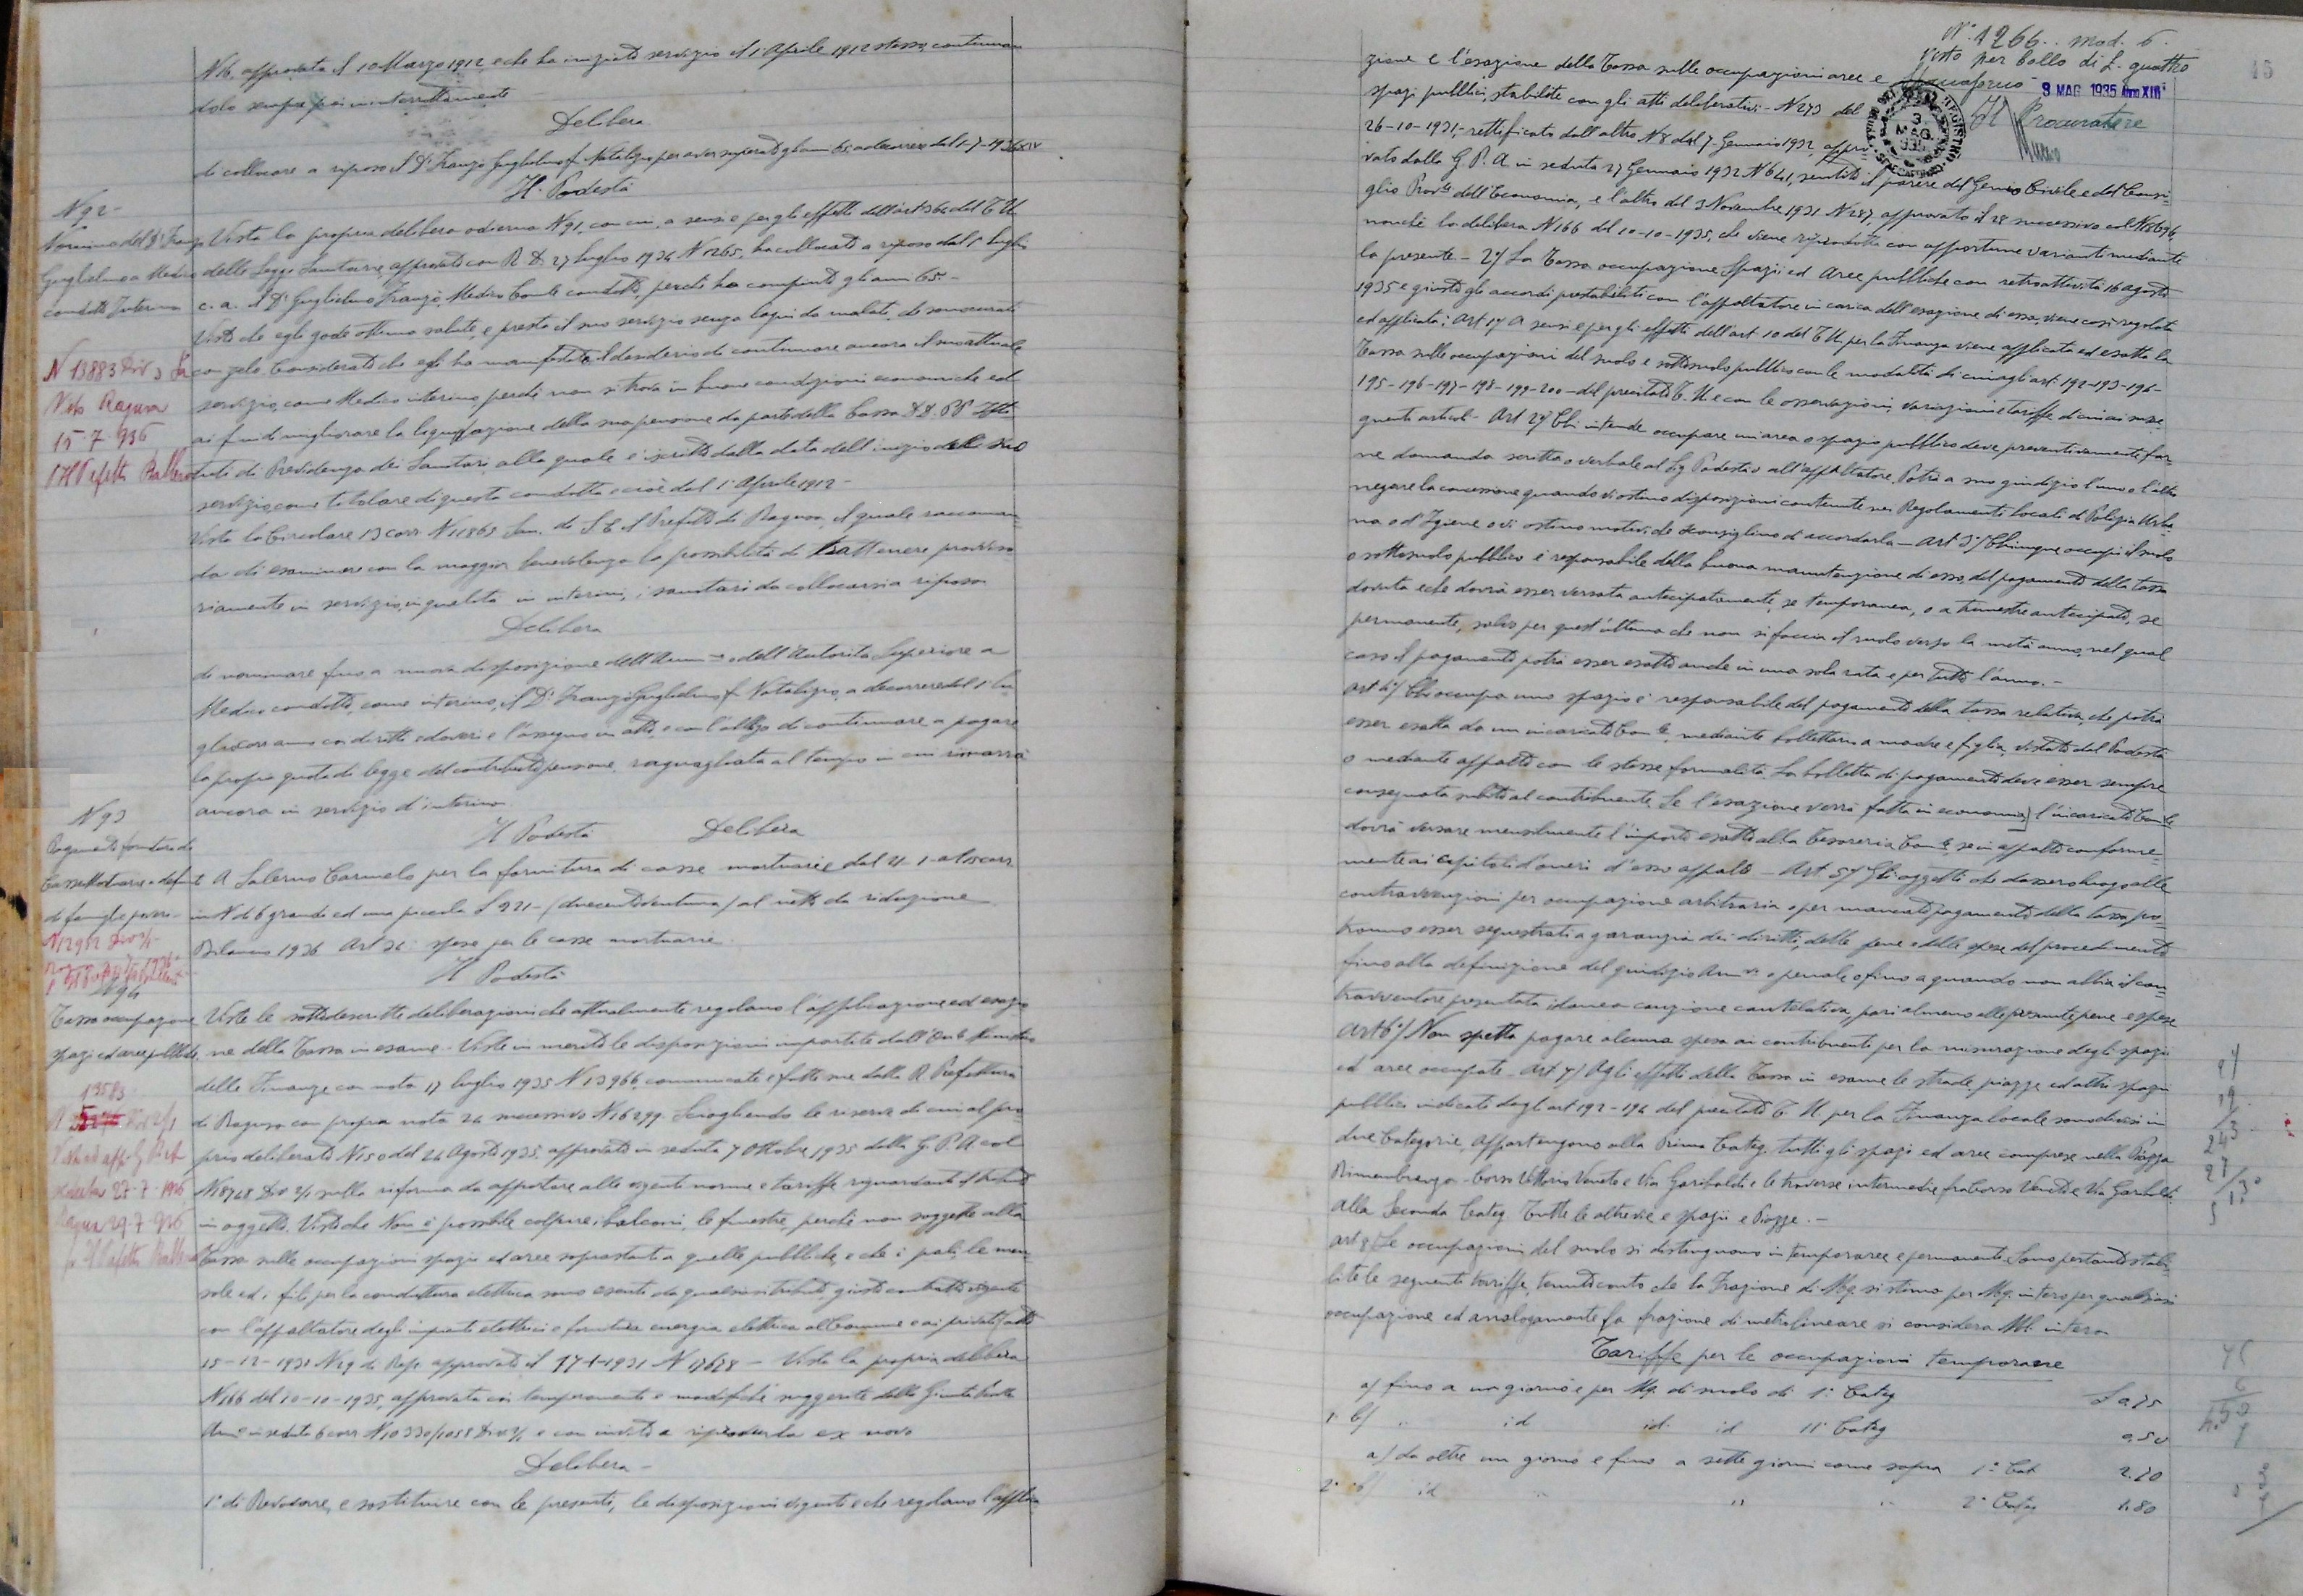 N 16, approvata il 10 Marzo 1912, e che ha iniziato servizio il 1° Aprile 1912 stesso, continuan
dolo sempre poi ininterrottamente
Delibera
di collocare a riposo il Dr Franzò Guglielmo fu Natalizio per aver superato gli anni 65, a decorrere dal 1-7-1936 XIV
Il Podestà
N 92-
Nomina del Dr Franzò
Guglielmo a Medico
condotto Interino
N 13883 Div 3 San
Visto Ragusa
15-7 936
Il Prefetto
Vista la propria delibera odierna N 91, con cui, a sensi e per gli effetti dell'art 364 del T. U.
delle Leggi Sanitarie, approvato con R. D. 27 luglio 1934 N 1265, ha collocato a riposo dal 1° luglio
c. a. il Dr Guglielmo Franzò, Medico Com.le condotto, perché ha compiuto gli anni 65.-
Visto che egli gode ottima salute, e presta il suo servizio senza lagni da malati, di
con zelo. Considerato che egli ha manifestato il desiderio di continuare ancora il suo attuale
servizio, come Medico interino, perché non si trova in buone condizioni economiche ed
ai fini di migliorare la liquidazione della sua pensione da parte della Cassa DD. PP. Isti
tuto di Previdenza dei Sanitari, alla quale è iscritto dalla data dell'inizio del suo
servizio, come titolare di questa condotta e cioè dal 1° Aprile 1912-
Vista la Circolare 13 corr. N 11863 San. di S. E. il Prefetto di Ragusa, il quale raccoman
da di esaminare con la maggior benevolenza la possibilità di trattenere provviso
riamente in servizio, in qualità di interini, i sanitari da collocarsi a riposo
Delibera
di nominare fino a nuova disposizione dell'Amm.ne o dell'Autorità Superiore a
Medico condotto, come interino, il Dr Franzò Guglielmo fu Natalizio, a decorrere dal 1° lu
glio corr. anno coi diritti e doveri e l'assegno in atto, e con l'obbligo di continuare a pagare
la propria quota di legge del contributo pensione, ragguagliata al tempo in cui rimarrà
ancora in servizio d'interino.
Il Podestà Delibera
N 93
Pagamento fornitura di
Casse Mortuarie a defunti
di famiglie povere-
N 12952 Div 2/1
A Salerno Carmelo per la fornitura di casse mortuarie dal 21-1- al 15 corr.
in N di 6 grandi ed una piccola £ 221- (duecentoventuna) al netto da riduzione
Bilancio 1936 Art 36 spese per le casse mortuarie.
Il Podestà
N 94
Tassa occupazione
spazi ed aree pubbliche
13583
Div 2/1
27-7-1936
Ragusa 29-7-936
p. Il Prefetto
Viste le sottodescritte deliberazioni che attualmente regolano l'applicazione ed esazio
ne della Tassa in esame- Viste in merito le disposizioni impartite dall'On.le Ministero
delle Finanze con nota 17 luglio 1935 N 13966, comunicate e fatte sue dalla R. Prefettura
di Ragusa con propria nota 24 successivo N 16299. Sciogliendo le riserve di cui al pro
prio deliberato N 150 del 24 Agosto 1935, approvato in seduta 7 Ottobre 1935 dalla G. P. A. col
N 18748 Div 2/1 sulla riforma da apportare alle vigenti norme e tariffe riguardanti il tributo
in oggetto. Visto che Non è possibile colpire i balconi, le finestre, perché non soggette alla
Tassa sulle occupazioni spazi ed aree soprastanti a quelle pubbliche, e che i pali, le men
sole ed i fili per la conduttura elettrica sono esenti da qualsiasi tributo, giusto contratto vigente
con l'appaltatore degli impianti elettrici e fornitura energia elettrica al Comune e ai privati, atto
15-12-1930 N 29 di Rep. approvato il 17-1-1931 N 17628 - Vista la propria delibera
N 166 del 10-10-1935, approvata coi temperamenti e modifiche suggerite dalla Giunta Prov.le
Amm.va in seduta 6 corr N 10330/1058 Div 2/1 e con invito a riprodurla ex novo
Delibera-
1° di Revocare, e sostituire con le presenti, le disposizioni vigenti e che regolano l'applica
N° 1266. mod. 6.
Visto per bollo di £. quattro
3 MAG 1935 Anno XIII
Il Procuratore
15
zione e l'esazione della Tassa sulle occupazioni aree e
spazi pubblici, stabilite con gli atti deliberativi- N 273 del
26-10-1931,- rettificato dall'altro N 8 del 7-Gennaio 1932, appro
vato dalla G. P. A. in seduta 27 Gennaio 1932 N 641, sentito il parere del Genio Civile e del Consi-
glio Prov.le dell'Economia, e l'altro del 3 Novembre 1931 N 287, approvato il 28 successivo col N 18696,
nonché la delibera N 166 del 10-10-1935, che viene riprodotta con opportune varianti mediante
la presente- 2°/ La Tassa occupazione Spazii ed Aree pubbliche con retroattività 16 agosto
1935 e giusto gli accordi prestabiliti con l'appaltatore in carica dell'esazione di essa, viene così regolata
ed applicata: Art 1°/ A sensi e per gli effetti dell'art 10 del T. U. per la Finanza viene applicata ed esatta la
Tassa sulle occupazioni del suolo e sottosuolo pubblico con le modalità di cui agli art: 192-193-194-
195-196-197-198-199-200-del precitato T. U. e con le osservazioni, variazioni e tariffe di cui ai susse
guenti articoli- Art 2°/ Chi intende occupare un'area o spazio pubblico deve preventivamente far-
ne domanda scritta o verbale al Sig. Podestà o all'appaltatore. Potrà a suo giudizio l'uno o l'altro
negare la concessione quando vi ostino disposizioni contenute nei Regolamenti locali di Polizia Urba-
na o d'Igiene o vi ostino motivi, che sconsiglino di accordarla- Art 3°/ Chiunque occupi il suolo
o sottosuolo pubblico è responsabile della buona manutenzione di esso, del pagamento della tassa
dovuta e che dovrà esser versata anticipatamente, se temporanea, o a trimestre anticipato, se
permanente, salvo per quest'ultima che non si faccia il ruolo verso la metà anno, nel qual
caso il pagamento potrà esser esatto anche in una sola rata e per tutto l'anno.-
Art 4°/ Chi occupa uno spazio è responsabile del pagamento della tassa relativa, che potrà
esser esatta da un incaricato Com.le, mediante bollettario a madre e figlia, vistato dal Podestà
o mediante appalto con le stesse formalità. La bolletta di pagamento deve esser sempre
consegnata subito al contribuente. Se l'esazione verrà fatta in economia, l'incaricato Com.le
dovrà versare mensilmente l'importo esatto alla Tesoreria Com.le, se in appalto conforme-
mente ai capitoli d'oneri d'esso appalto- Art. 5°/ Gli oggetti che dassero luogo alle
contravvenzioni per occupazione arbitraria o per mancato pagamento della tassa po-
tranno esser sequestrati a garanzia dei diritti, delle pene e delle spese del procedimento
fino alla definizione del giudizio Amm.vo o penale, o fino a quando non abbia il con-
travventore presentata idonea cauzione cautelativa, pari almeno alle presunte pene e spese
Art 6°/ Non spetta pagare alcuna spesa ai contribuenti per la misurazione degli spazii
ed aree occupate- Art 7°/ Agli effetti della Tassa in esame le strade, piazze ed altri spazii
pubblici indicati dagli art 192-194 del precitato T. U. per la Finanza locale sono divisi in
due Categorie. Appartengono alla Prima Categ. tutti gli spazi ed aree comprese nella Piazza
Rimembranza- Corso Vittorio Veneto e Via Garibaldi e le traverse intermedie fra Corso Veneto e Via Garibaldi.
Alla Seconda Categ. Tutte le altre vie e spazii e Piazze.-
Art 8/ Le occupazioni del suolo si distinguono in temporanee e permanenti. Sono pertanto stabi-
lite le seguenti tariffe, tenuto conto che la Frazione di Mq. si stima per Mq. intero per qualsiasi
occupazione ed analogamente la frazione di metro lineare si considera Ml. intero
Tariffe per le occupazioni temporanee
a/ fino a un giorno e per Mq. di suolo di 1° Categ £ 0.75
1° b/ " id id id II° Categ 0.50
a/ da oltre un giorno e fino a sette giorni come sopra 1° Cat 2.20
2° b/ id " " " 2° Categ 1.80